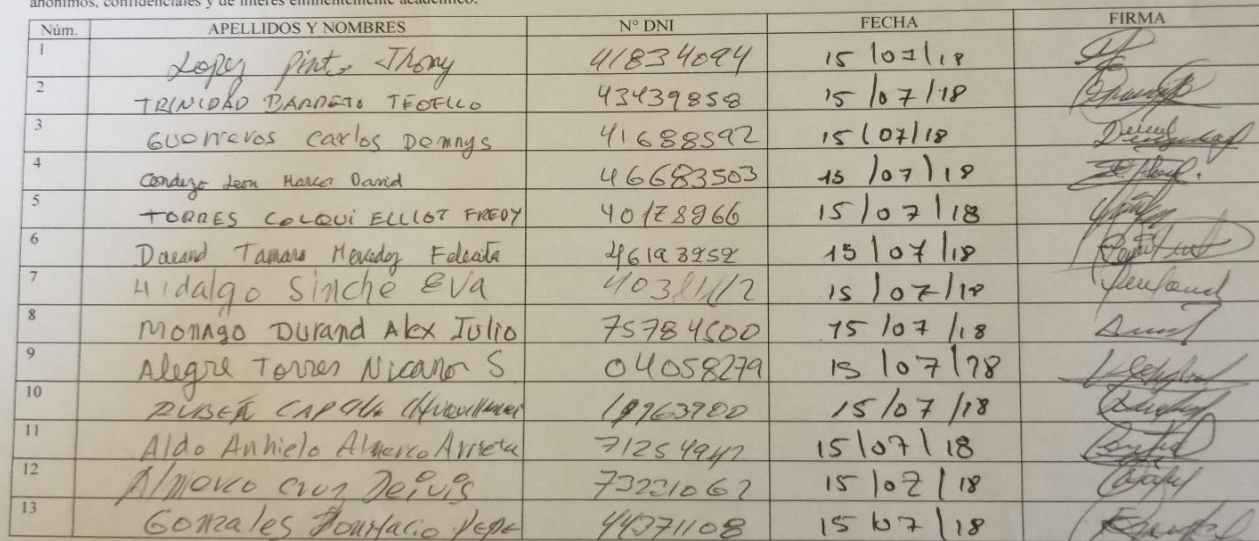 anónimos, confidenciales y de interés eminentemente académico.
Núm. APELLIDOS Y NOMBRES N° DNI FECHA FIRMA
1 Lopez Pinto Jhony 41834094 15/07/18
2 TRINIDAD BARRETO TEOFILO 43439858 15/07/18
3 Guerreros Carlos Dennys 41688592 15/07/18
4 Condezo Leon Marco David 46683503 15/07/18
5 TORRES COLQUI ELLIOT FREDY 40178966 15/07/18
6 Durand Tamara Felicita 46193252 15/07/18
7 Hidalgo Sinche Eva 15/07/18
8 Monago Durand Alex Julio 75784500 15/07/18
9 Alegre Torres Nicanor S 04058279 15/07/18
10 RUBEN 19963900 15/07/18
11 Aldo Anhielo Almerco Arrieta 71254942 15/07/18
12 Almerco Cruz Deivis 73231062 15/07/18
13 Gonzales Bonifacio Pepe 44371108 15/07/18